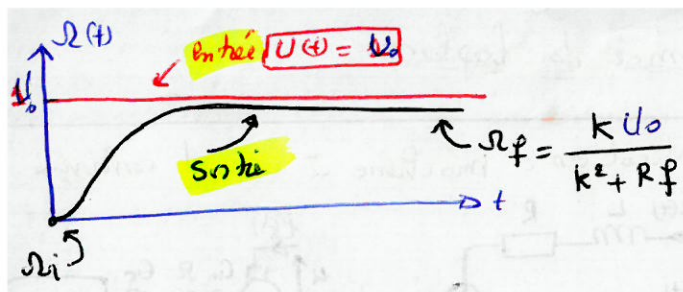 Ω(t)
entrée U(t) = U₀
U₀
Sortie
Ω_f = K U₀ / (K² + R f)
t
Ω_i